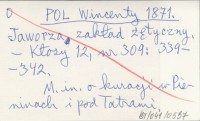 O POL Wincenty 1871.
Jaworze, zakład żętyczny.
– Kłosy 12, nr 309: 339–
–342.
M. in. o kuracji w Pie-
ninach i pod Tatrami.